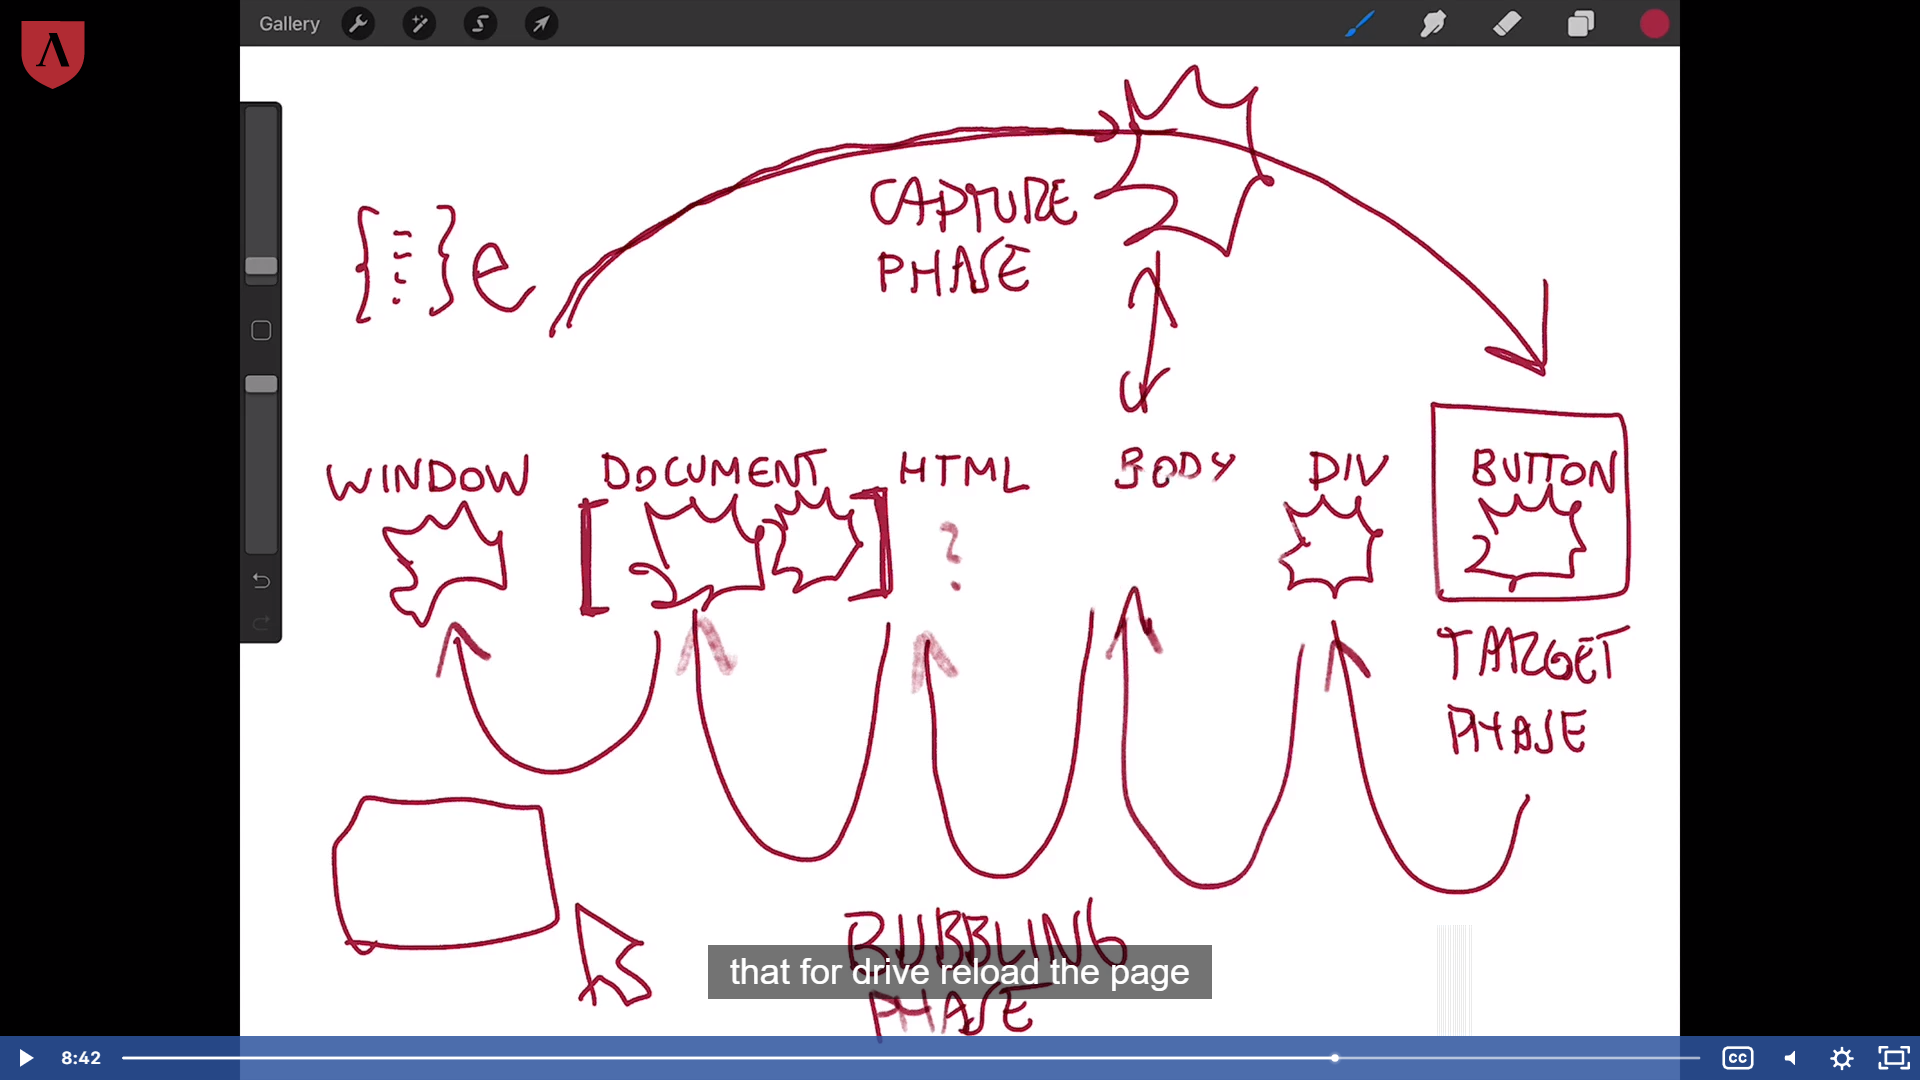 Gallery
CAPTURE
PHASE
{ } e
WINDOW DOCUMENT HTML BODY DIV BUTTON
[ ] ?
TARGET
PHASE
BUBBLING
that for drive reload the page
PHASE
8:42
CC